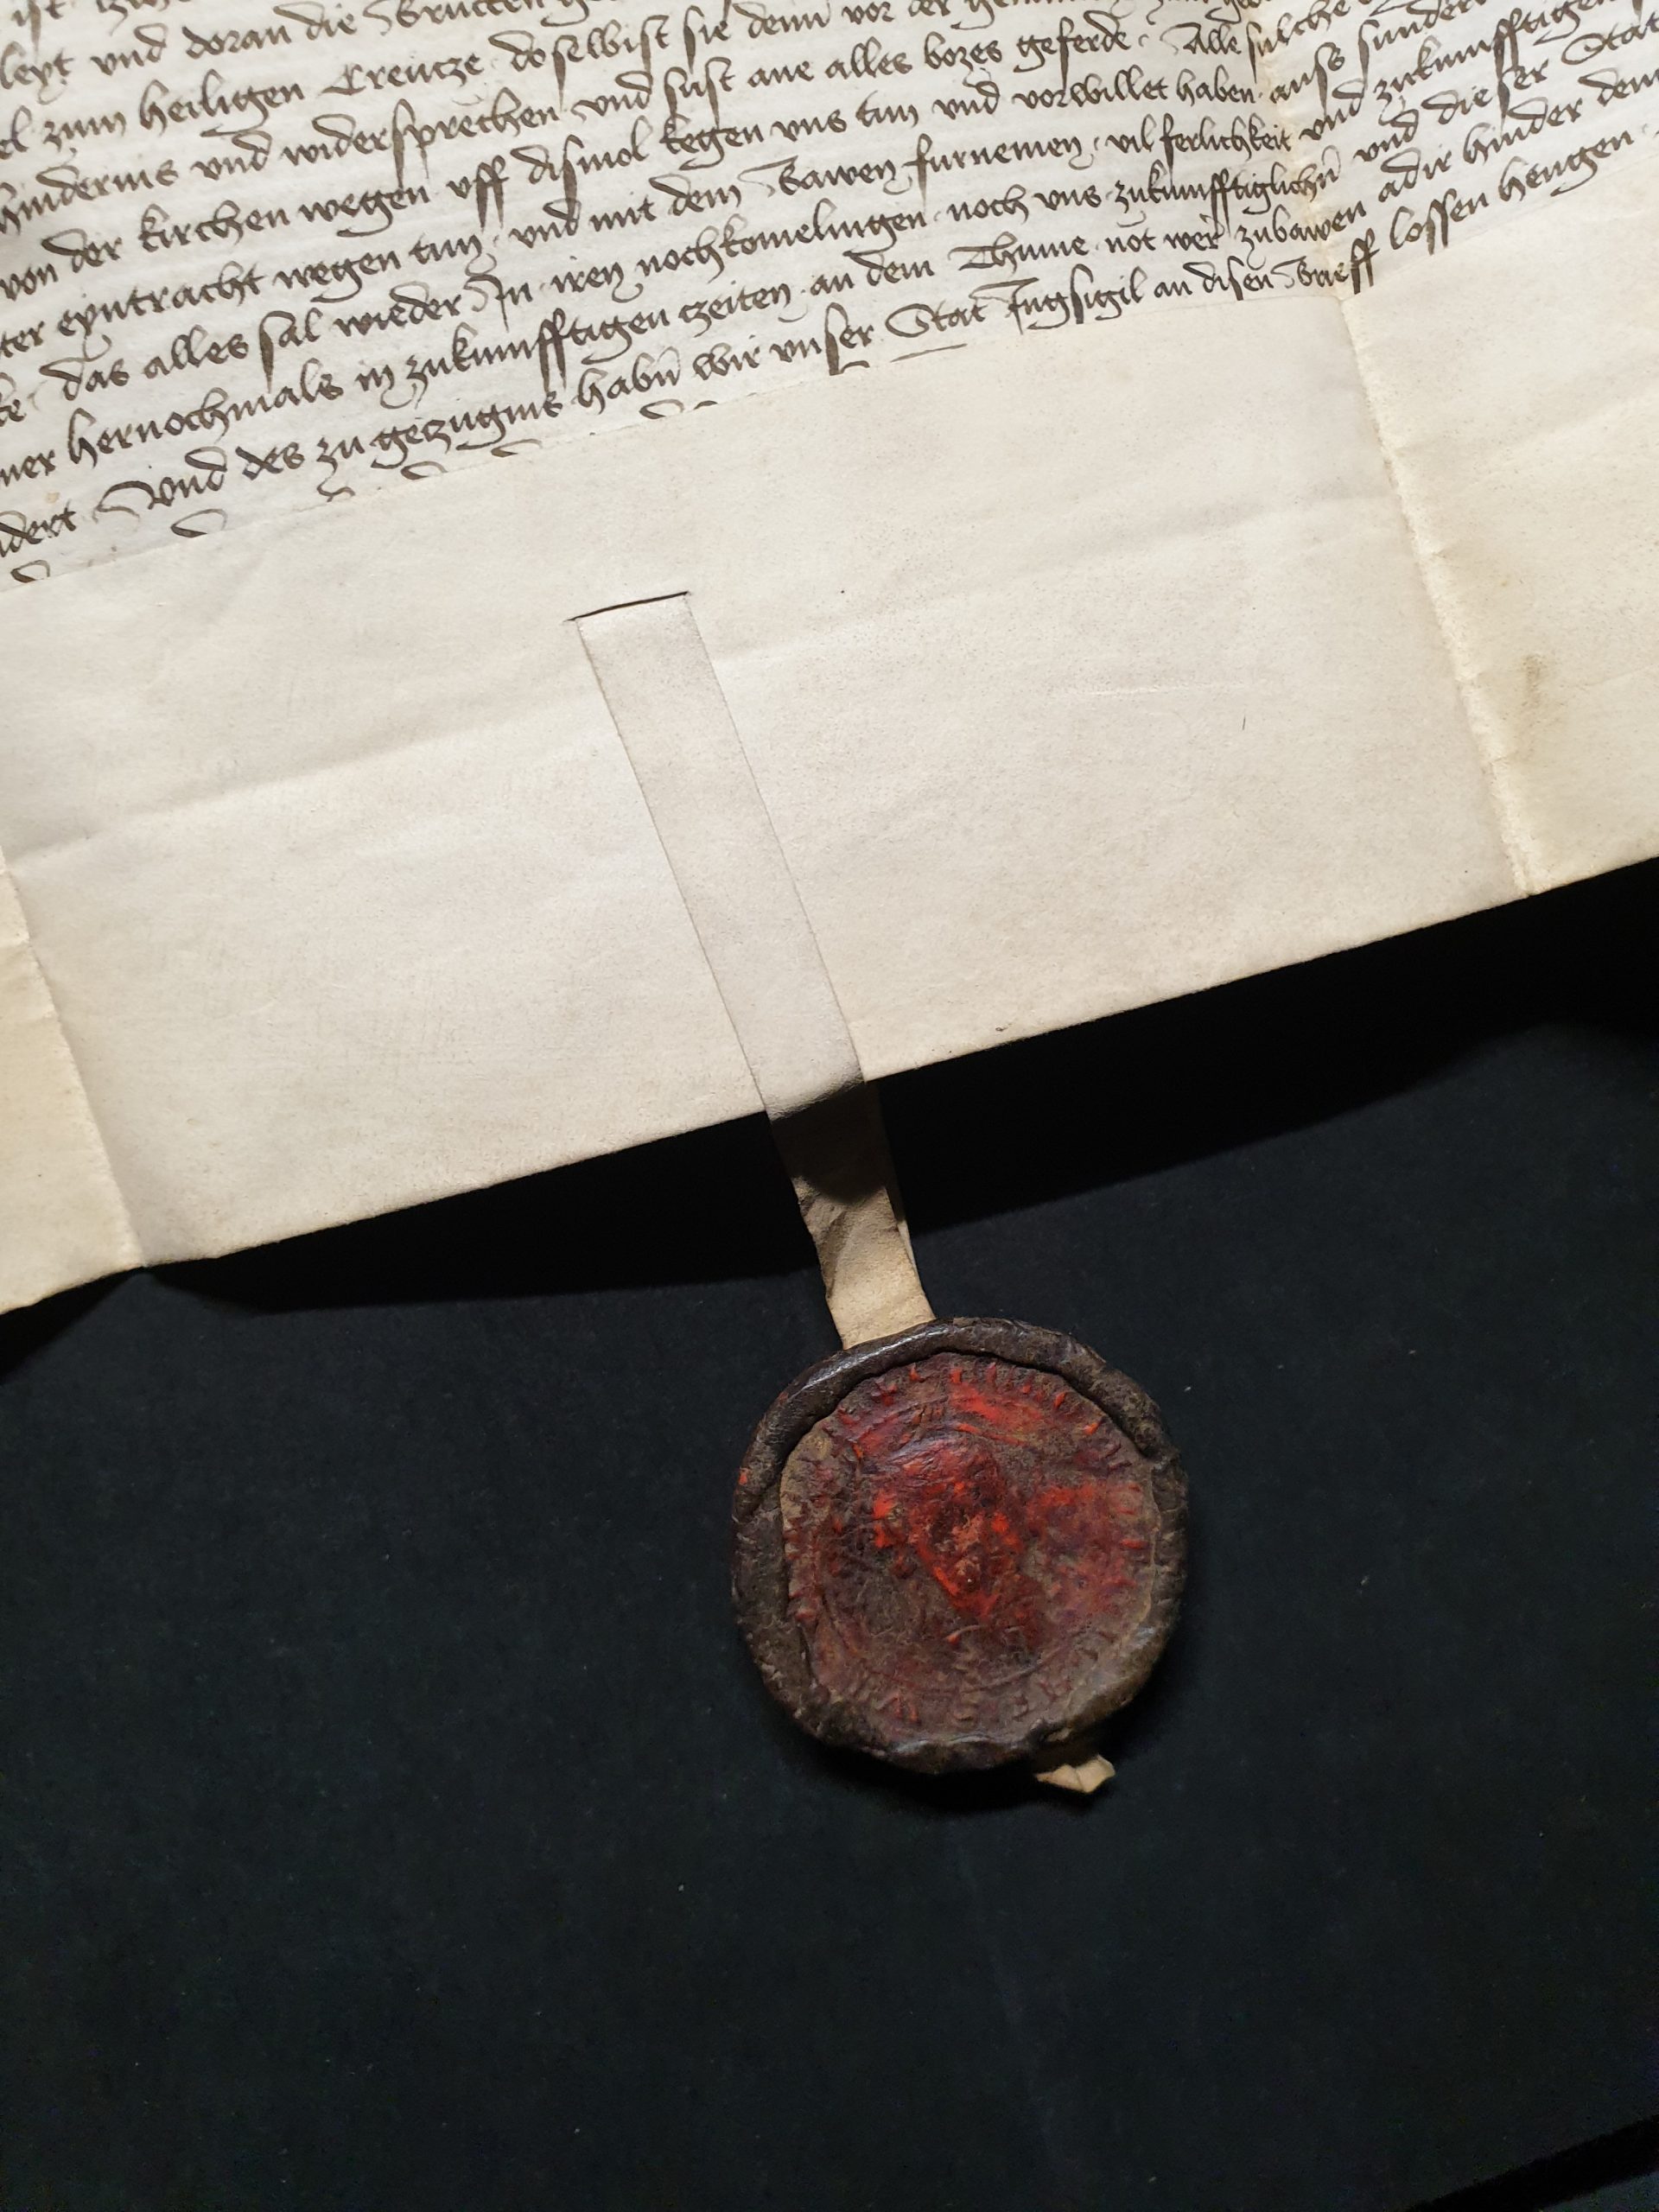 ist
leyt vnd doran die Brucken
el zum heiligen Creucze doselbist sie denn vor der
hindernis vnd widersprechen vnd sust ane alles bozes geferde Alle sulche
von der kirchen wegen vff dismol kegen vns tun vnd vorwillet haben auss sunder
ter eyntracht wegen tun vnd mit dem Bawen furnemen vil ferlichkeit vnd zukunfftigen
das alles sal wieder In iren nochkomelingen noch vns zukunfftiglichn̄ vnd dieser Stat
ner hernochmals in zukunfftigen czeiten an dem Thume not wer zubawen adir hinder dem
dert Vnd des zu geczugnis habn̄ wir vnser Stat Ingsigil an disen Brieff lossen hengen